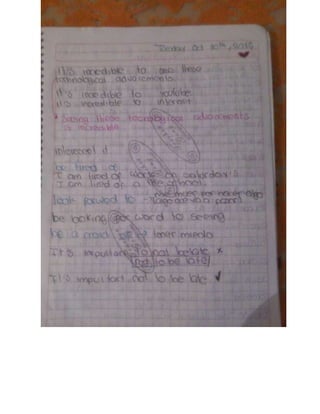 Tuesday Oct 20th, 2015
It's incredible to see these
technological advancements.
It's incredible to youtube.
It's incredible to internet
* Seeing these tecnological advancements
is incredible
be tired of
I am tired of work on saturday's
I am tired of
look forward to
be looking for word to seeing
be afraid of tener miedo
It's important to not be late x
not to be late
It's important not to be late ✓